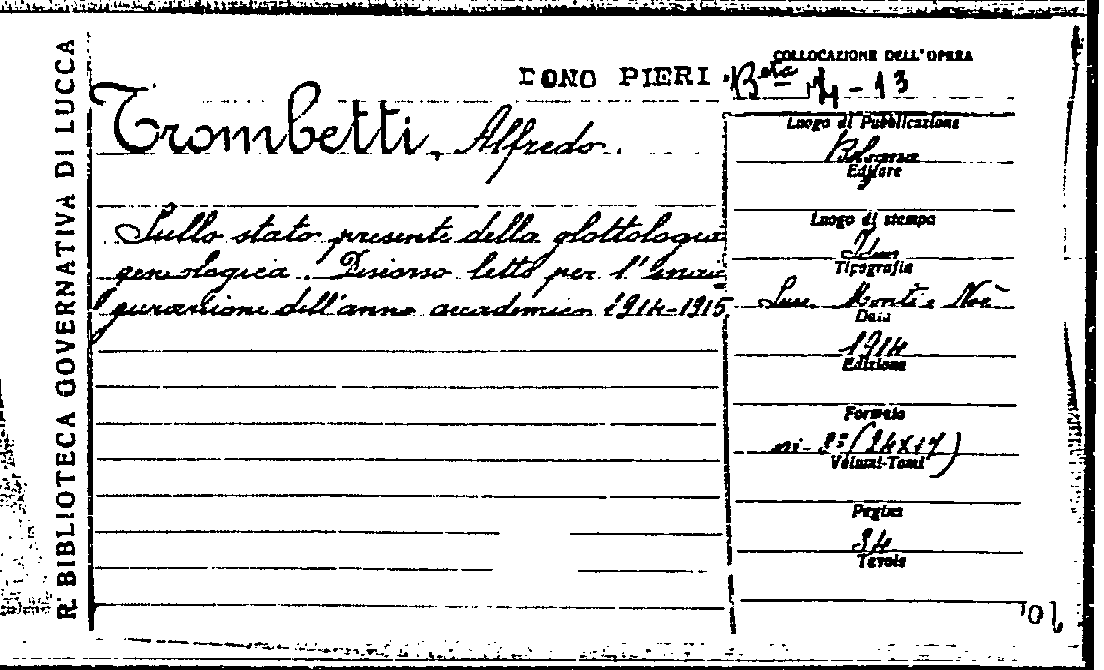 R. BIBLIOTECA GOVERNATIVA DI LUCCA
DONO PIERI
COLLOCAZIONE DELL'OPERA
B.ta 74-13
Trombetti, Alfredo.
Sullo stato presente della glottologia
genealogica. Discorso letto per l'inau
gurazione dell'anno accademico 1914-1915
Luogo di Pubblicazione
Bologna
Editore
Luogo di stampa
Idem
Tipografia
Succ. Monti e Noè
Data
1914
Edizione
Formato
in-8° (24x17)
Volumi-Tomi
Pagine
34
Tavole